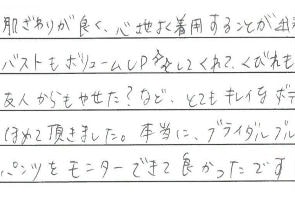 肌ざわりが良く、心地よく着用することが出
バストもボリュームUPをしてくれて、くびれも
友人からもやせた?など、とてもキレイなボデ
ほめて頂きました。本当に、ブライダルブル
パンツをモニターできて良かったです